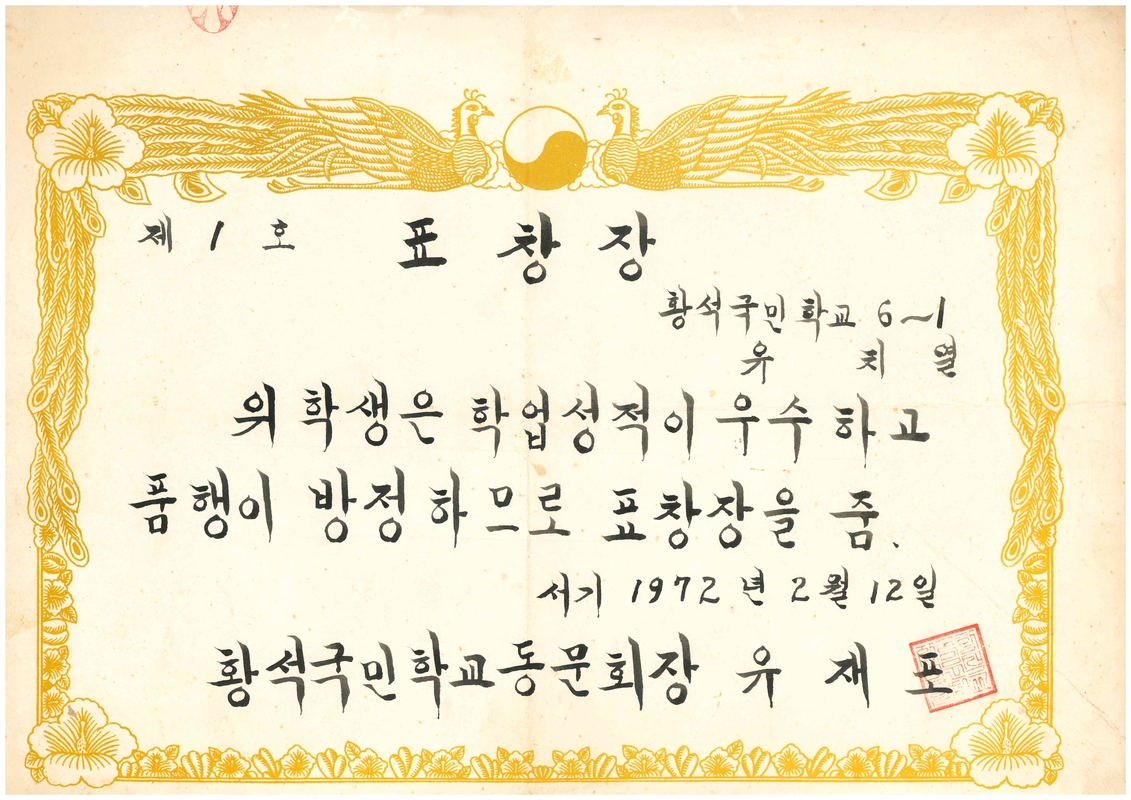 제 1 호 표 창 장
황석국민학교 6~1
유 치 열
위 학생은 학업성적이 우수 하고
품행이 방정 하므로 표창장을 줌.
서기 1972 년 2 월 12 일
황석국민학교동문회장 유 재 포